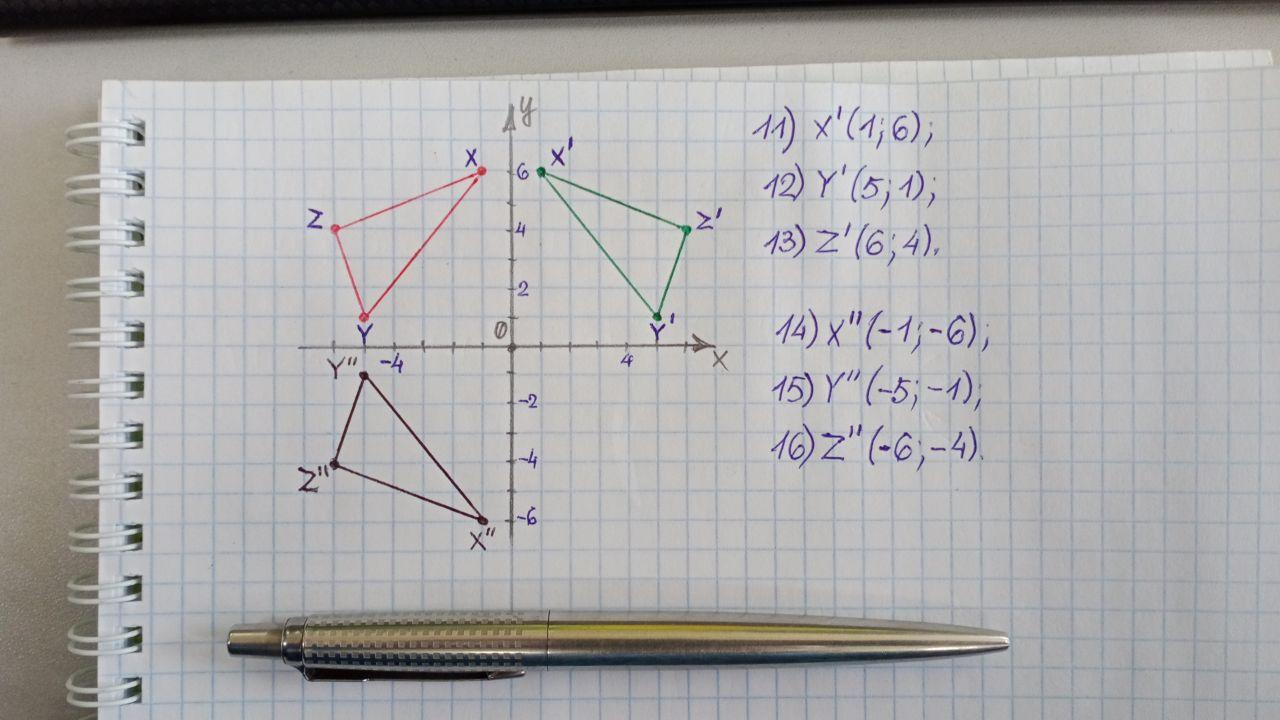 y
X X' 6
Z 4 Z'
2
0
Y Y'
-4 4 X
Y"
-2
Z" -4
-6
X"
11) X'(1;6);
12) Y'(5;1);
13) Z'(6;4).
14) X"(-1;-6);
15) Y"(-5;-1);
16) Z"(-6;-4).